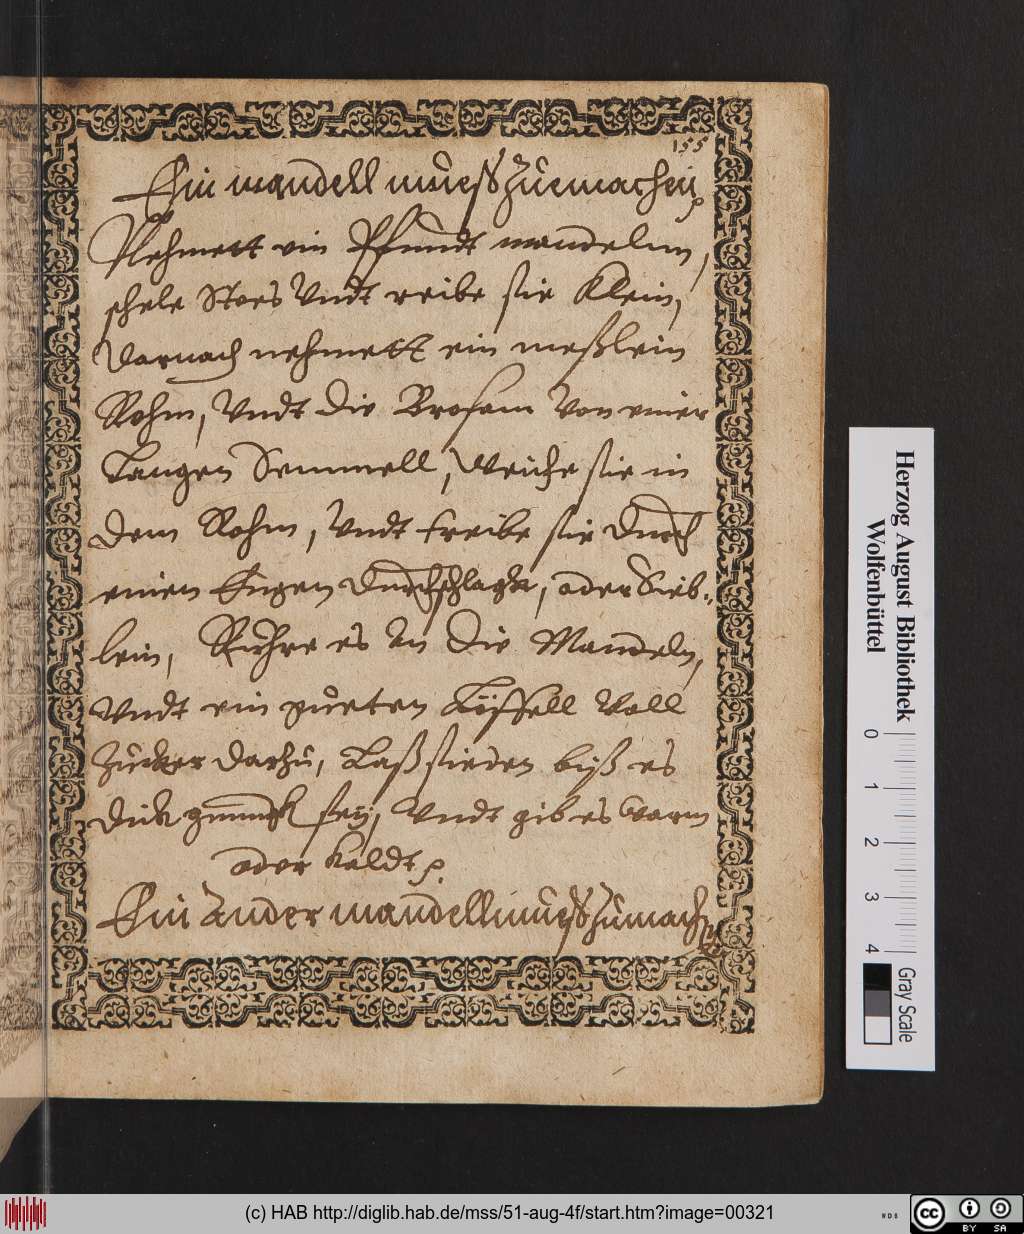 155
Ein mandell mueß zuemachen
Nehmett ein Pfundt mandelnn,
schele Stoes Vndt reibe sie Klein,
Darnach nehmett ein meßlein
Rohm, Vndt die Brosam Von einer
Langen Semmell, Weiche sie in
dem Rohm, Vndt treibe sie durch
einen Engen durchschlagk, oder Sieb-
lein, Rühre es An die Mandeln,
Vndt ein gueten Löffell Voll
Zucker darzu, Laß sieden biß es
dick genungk sey, Vndt gib es Warm
oder Kaldt
Ein Ander mandell mueß Zumachen
Herzog August Bibliothek
Wolfenbüttel
0 1 2 3 4
Gray Scale
(c) HAB http://diglib.hab.de/mss/51-aug-4f/start.htm?image=00321
WDB
cc
BY SA